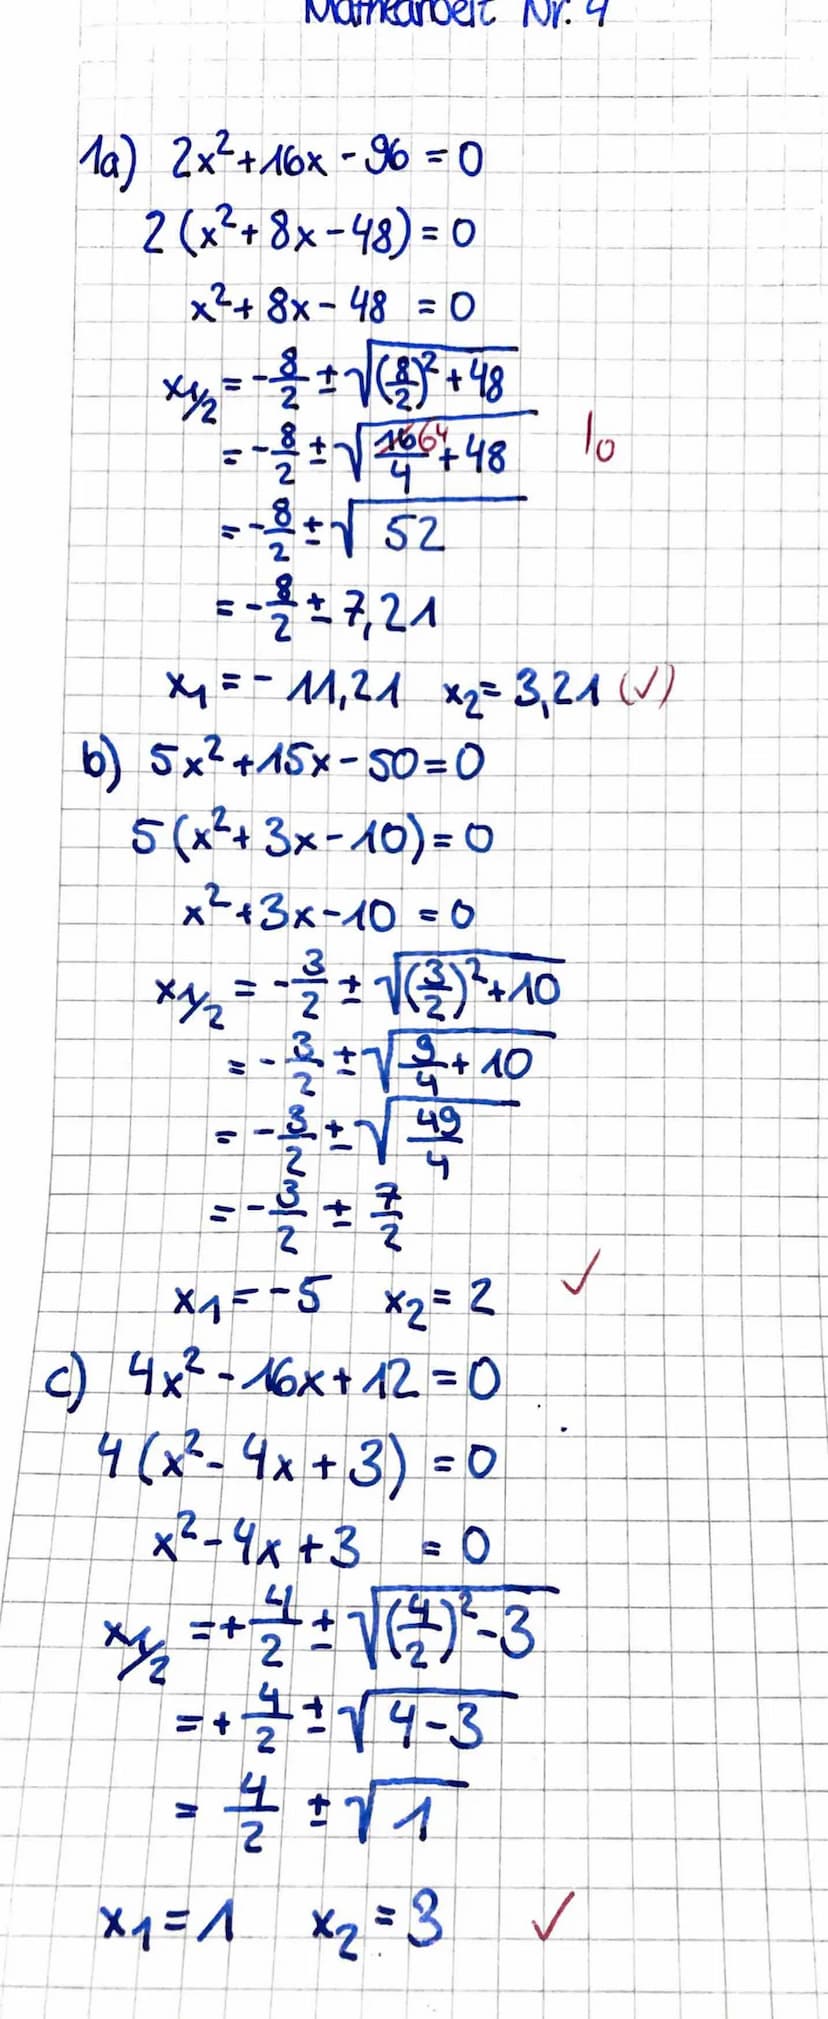 Mathearbeit Nr. 4
1a) 2x²+16x-96=0
2(x²+8x-48)=0
x²+8x-48 =0
x1/2=-8/2±√((8/2)²+48)
=-8/2±√(16 64/4+48) 
=-8/2±√52
=-8/2±7,21
x₁=-11,21 x₂=3,21 (✓)
b) 5x²+15x-50=0
5(x²+3x-10)=0
x²+3x-10 =0
x1/2 = -3/2 ± √((3/2)²+10)
= -3/2 ± √(9/4+10)
= -3/2 ± √(49/4)
= -3/2 ± 7/2
x₁=-5 x₂=2 ✓
c) 4x²-16x+12=0
4(x²-4x+3) =0
x²-4x+3 =0
x1/2 =+4/2 ± √((4/2)²-3)
=+4/2 ± √(4-3)
= 4/2 ± √1
x₁=1 x₂=3 ✓